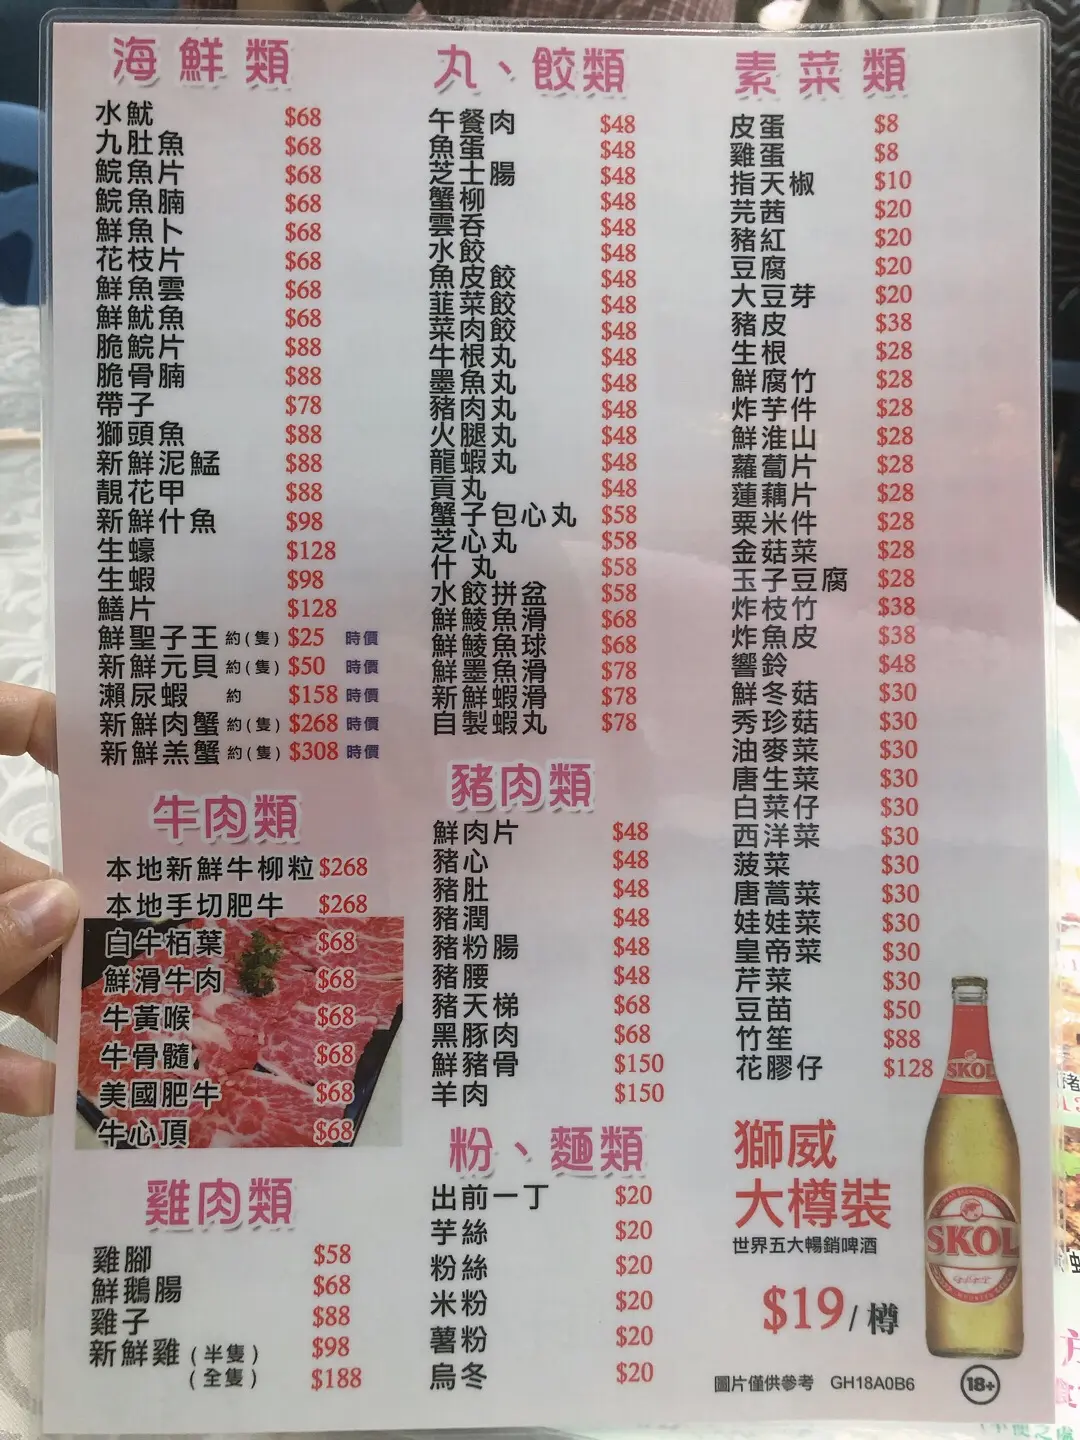 海鮮類
水魷 $68
九肚魚 $68
鯇魚片 $68
鯇魚腩 $68
鮮魚卜 $68
花枝片 $68
鮮魚雲 $68
鮮魷魚 $68
脆鯇片 $88
脆骨腩 $88
帶子 $78
獅頭魚 $88
新鮮泥鯭 $88
靚花甲 $88
新鮮什魚 $98
生蠔 $128
生蝦 $98
鱔片 $128
鮮聖子王 約(隻) $25 時價
新鮮元貝 約(隻) $50 時價
瀨尿蝦 約 $158 時價
新鮮肉蟹 約(隻) $268 時價
新鮮羔蟹 約(隻) $308 時價
牛肉類
本地新鮮牛柳粒 $268
本地手切肥牛 $268
白牛栢葉 $68
鮮滑牛肉 $68
牛黃喉 $68
牛骨髓 $68
美國肥牛 $68
牛心頂 $68
雞肉類
雞腳 $58
鮮鵝腸 $68
雞子 $88
新鮮雞 (半隻) $98
(全隻) $188
丸、餃類
午餐肉 $48
魚蛋 $48
芝士腸 $48
蟹柳 $48
雲吞 $48
水餃 $48
魚皮餃 $48
韮菜餃 $48
菜肉餃 $48
牛根丸 $48
墨魚丸 $48
豬肉丸 $48
火腿丸 $48
龍蝦丸 $48
貢丸 $48
蟹子包心丸 $58
芝心丸 $58
什 丸 $58
水餃拼盆 $58
鮮鯪魚滑 $68
鮮鯪魚球 $68
鮮墨魚滑 $78
新鮮蝦滑 $78
自製蝦丸 $78
豬肉類
鮮肉片 $48
豬心 $48
豬肚 $48
豬潤 $48
豬粉腸 $48
豬腰 $48
豬天梯 $68
黑豚肉 $68
鮮豬骨 $150
羊肉 $150
粉、麵類
出前一丁 $20
芋絲 $20
粉絲 $20
米粉 $20
薯粉 $20
烏冬 $20
素菜類
皮蛋 $8
雞蛋 $8
指天椒 $10
芫茜 $20
豬紅 $20
豆腐 $20
大豆芽 $20
豬皮 $38
生根 $28
鮮腐竹 $28
炸芋件 $28
鮮淮山 $28
蘿蔔片 $28
蓮藕片 $28
粟米件 $28
金菇菜 $28
玉子豆腐 $28
炸枝竹 $38
炸魚皮 $38
響鈴 $48
鮮冬菇 $30
秀珍菇 $30
油麥菜 $30
唐生菜 $30
白菜仔 $30
西洋菜 $30
菠菜 $30
唐蒿菜 $30
娃娃菜 $30
皇帝菜 $30
芹菜 $30
豆苗 $50
竹笙 $88
花膠仔 $128
獅威
大樽裝
世界五大暢銷啤酒
$19/樽
圖片僅供參考 GH18A0B6
18+
SKOL
SKOL